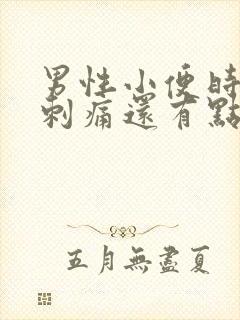 男性小便時
刺痛還有點
五月無盡夏